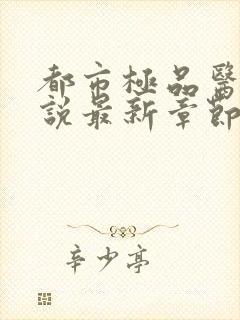 都市極品醫
說最新章節
辛少亭